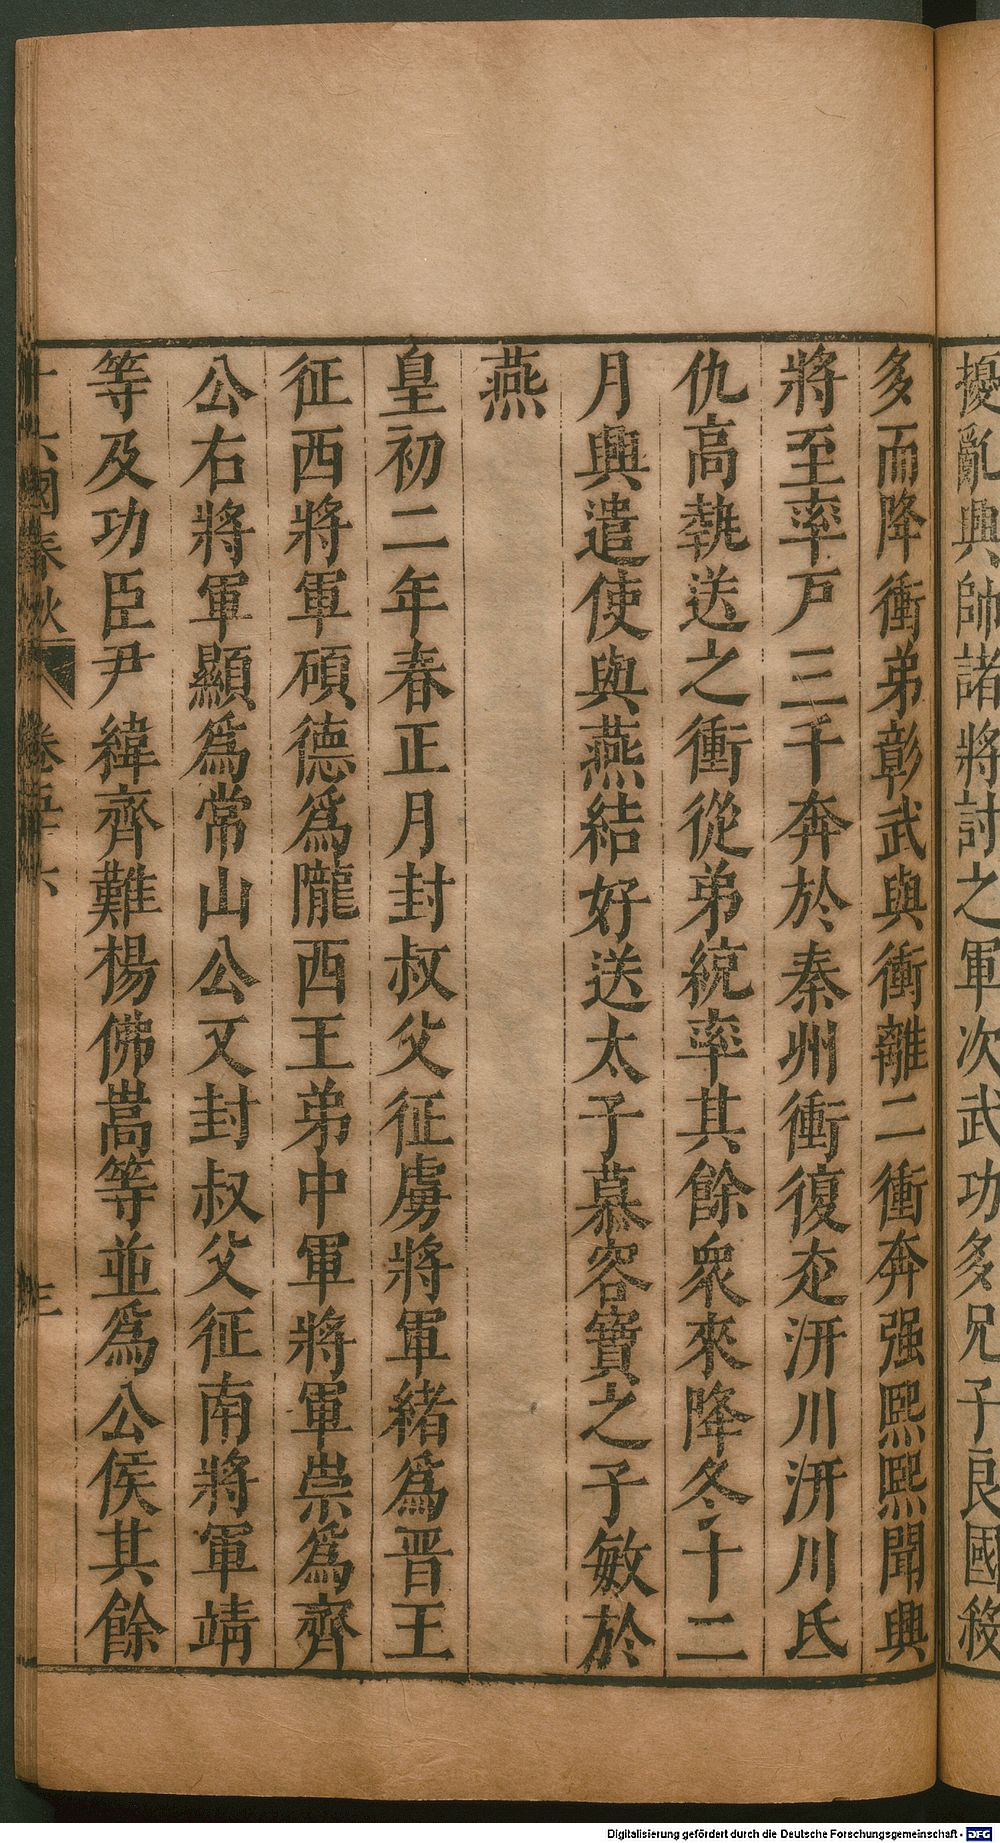 擾亂興帥諸將討之軍次武功多兄子良國殺
多而降衝弟彰武與衝離二衝奔强熙熙聞興
將至率戸三千奔於秦州衝復走汧川汧川氐
仇高執送之衝從弟統率其餘衆來降冬十二
月興遣使與燕結好送太子慕容寶之子敏於
燕
皇初二年春正月封叔父征虜將軍緒爲晋王
征西將軍碩德爲隴西王弟中軍將軍崇爲齊
公右將軍顯爲常山公又封叔父征南將軍靖
等及功臣尹緯齊難楊佛嵩等並爲公侯其餘
十六國春秋 卷五十六 三
Digitalisierung gefördert durch die Deutsche Forschungsgemeinschaft - DFG